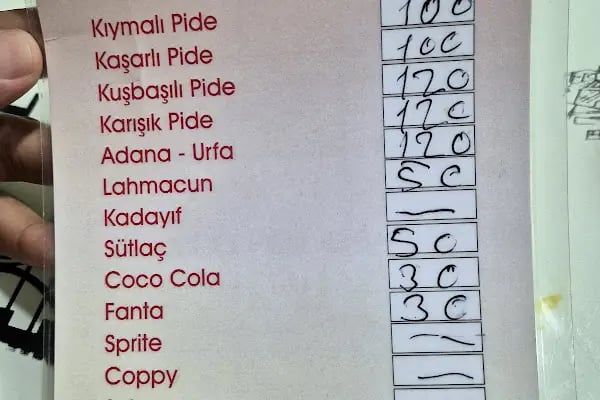 Kıymalı Pide 100
Kaşarlı Pide 100
Kuşbaşılı Pide 120
Karışık Pide 120
Adana - Urfa 120
Lahmacun 50
Kadayıf —
Sütlaç 50
Coco Cola 30
Fanta 30
Sprite —
Coppy —